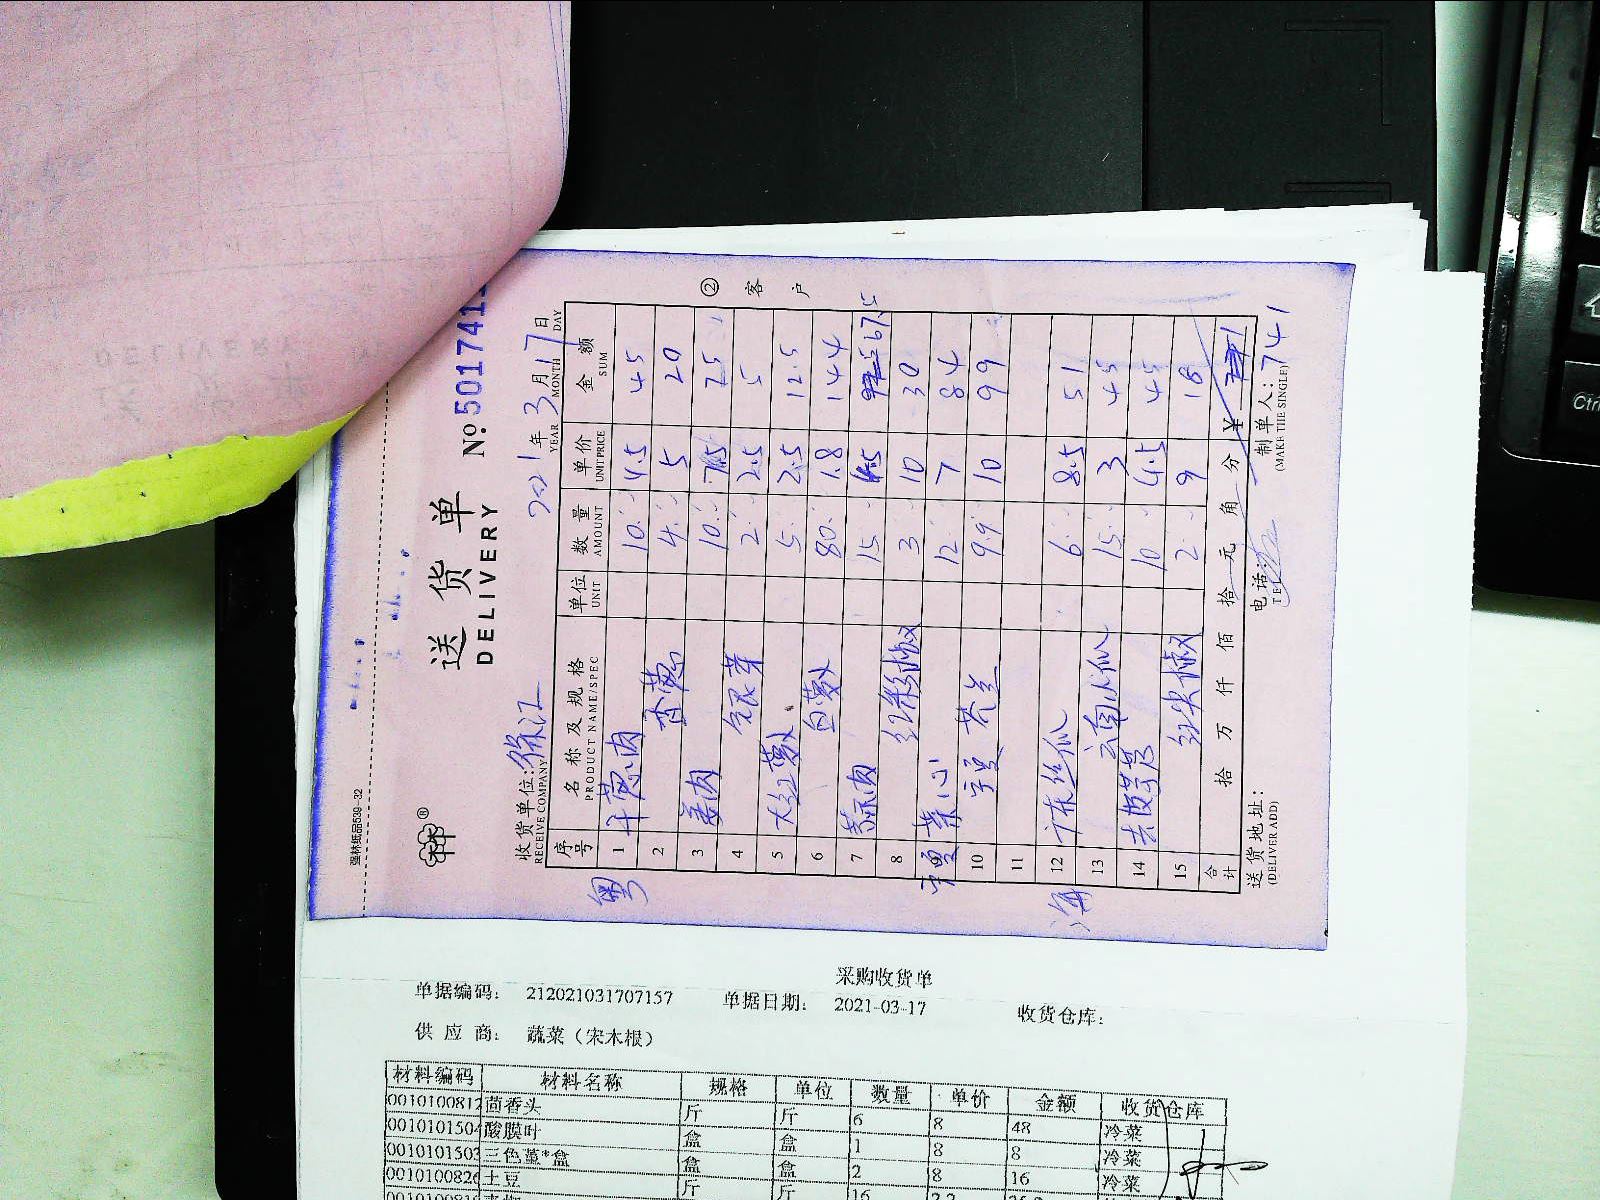 强林纸品539-32
送货单
DELIVERY
№501741
②客户
收货单位:徐汇 2021年3月17日
RECEIVE COMPANY YEAR MONTH DAY
序号 名称及规格 单位 数量 单价 金额
PRODUCT NAME/SPEC UNIT AMOUNT UNIT PRICE SUM
粤
1 10 4.5 45
2 香葱 4 5 20
3 姜肉 10 7.5 75
4 2 2.5 5
5 大红萝卜 5 2.5 12.5
6 白萝卜 80 1.8 144
7 蒜肉 15 4.5 67.5
8 红彩椒 3 10 30
9 菜心 12 7 84
10 芥兰 9.9 10 99
11
海
12 广东丝瓜 6 8.5 51
13 云南小瓜 15 3 45
14 10 4.5 45
15 红尖椒 2 9 18
合计 拾 万 仟 佰 拾 元 角 分 ¥
送货地址: 电话: 制单人: 741
(DELIVER ADD) TEL (MAKE THE SINGLE)
采购收货单
单据编码: 212021031707157 单据日期: 2021-03-17 收货仓库:
供应商: 蔬菜(宋木根)
材料编码 材料名称 规格 单位 数量 单价 金额 收货仓库
0010100812 茴香头 斤 斤 6 8 48 冷菜
001010150 酸膜叶 盒 盒 1 8 8 冷菜
001010150 三色堇*盒 盒 盒 2 8 16 冷菜
001010082 土豆 斤 斤 16